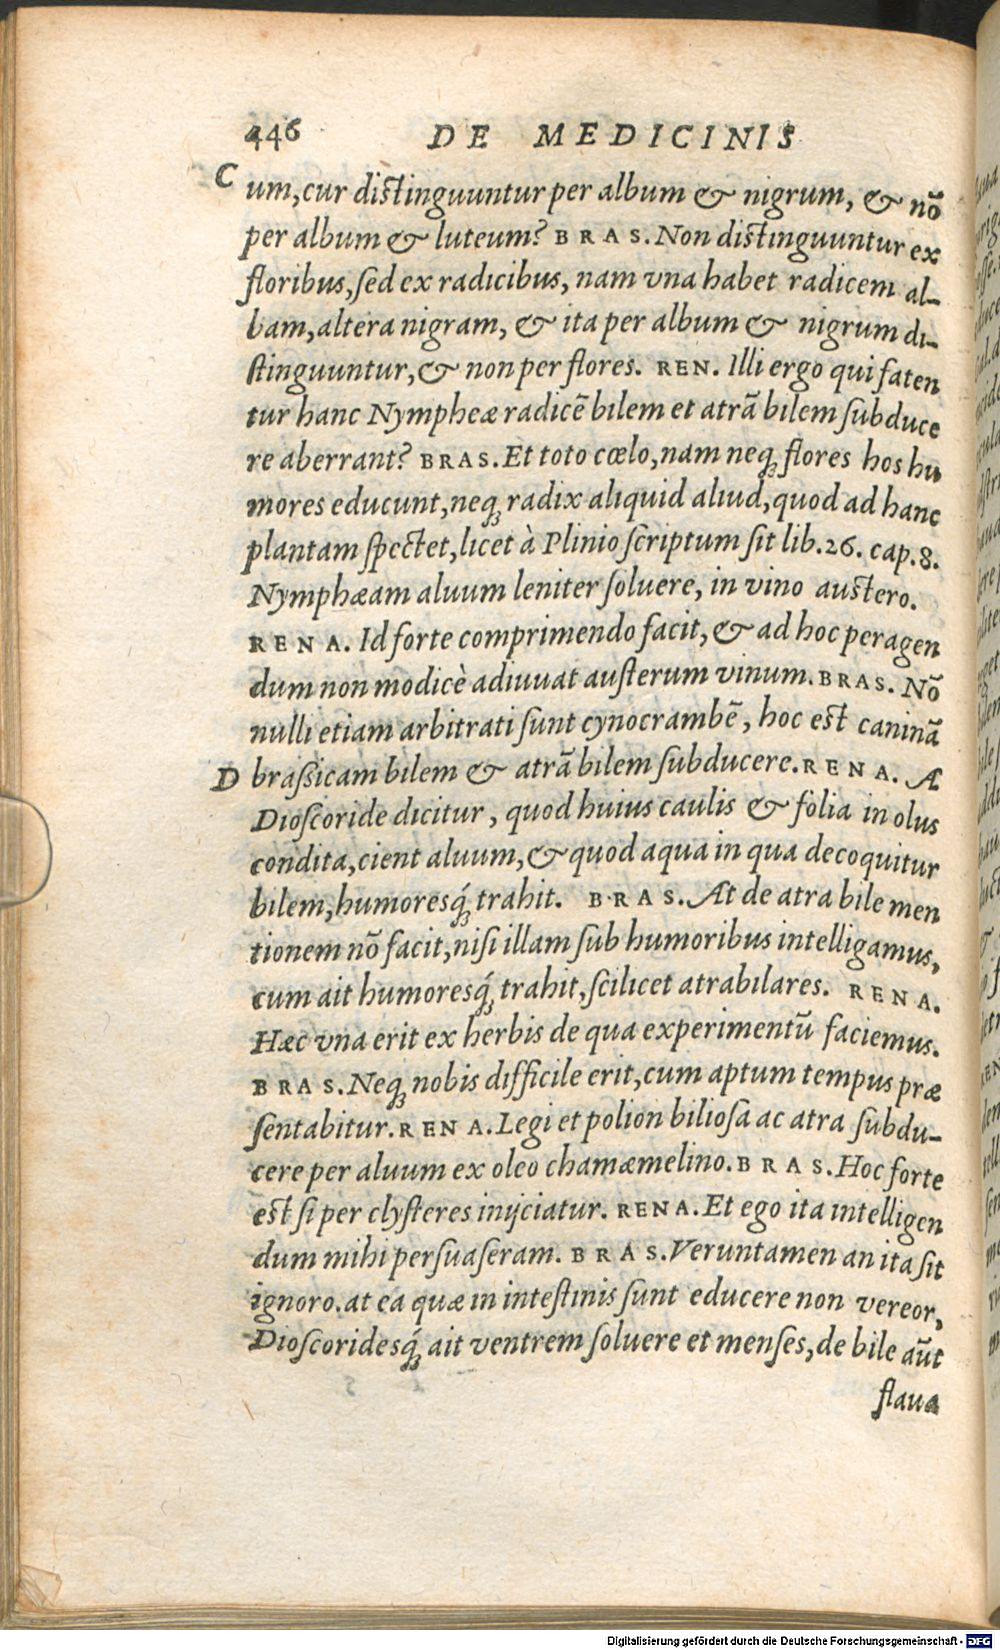 446 DE MEDICINIS
C um,cur distinguuntur per album & nigrum, & nō
per album & luteum? BRAS. Non distinguuntur ex
floribus,ſed ex radicibus, nam vna habet radicem al-
bam,altera nigram, & ita per album & nigrum di-
stinguuntur,& non per flores. REN. Illi ergo qui faten
tur hanc Nympheæ radicē bilem et atrā bilem ſubduce
re aberrant? BRAS. Et toto cœlo,nam neq; flores hos hu
mores educunt,neq; radix aliquid aliud,quod ad hanc
plantam ſpectet,licet à Plinio ſcriptum ſit lib.26. cap.8.
Nymphæam aluum leniter ſoluere, in vino austero.
RENA. Id forte comprimendo facit,& ad hoc peragen
dum non modicè adiuuat auſterum vinum. BRAS. Nō
nulli etiam arbitrati ſunt cynocrambē, hoc est caninā
D braſsicam bilem & atrā bilem ſubducere. RENA. A
Dioſcoride dicitur, quod huius caulis & folia in olus
condita,cient aluum,& quod aqua in qua decoquitur
bilem,humoresq́; trahit. BRAS. At de atra bile men
tionem nō facit,niſi illam ſub humoribus intelligamus,
cum ait humoresq́; trahit,ſcilicet atrabilares. RENA.
Hæc vna erit ex herbis de qua experimentū faciemus.
BRAS. Neq; nobis difficile erit,cum aptum tempus præ
ſentabitur. RENA. Legi et polion bilioſa ac atra ſubdu-
cere per aluum ex oleo chamæmelino. BRAS. Hoc forte
est ſi per clyſteres inijciatur. RENA. Et ego ita intelligen
dum mihi perſuaſeram. BRAS. Veruntamen an ita ſit
ignoro.at ea quæ in inteſtinis ſunt educere non vereor,
Dioſcoridesq́; ait ventrem ſoluere et menſes,de bile aūt
flaua
Digitalisierung gefördert durch die Deutsche Forschungsgemeinschaft - DFG